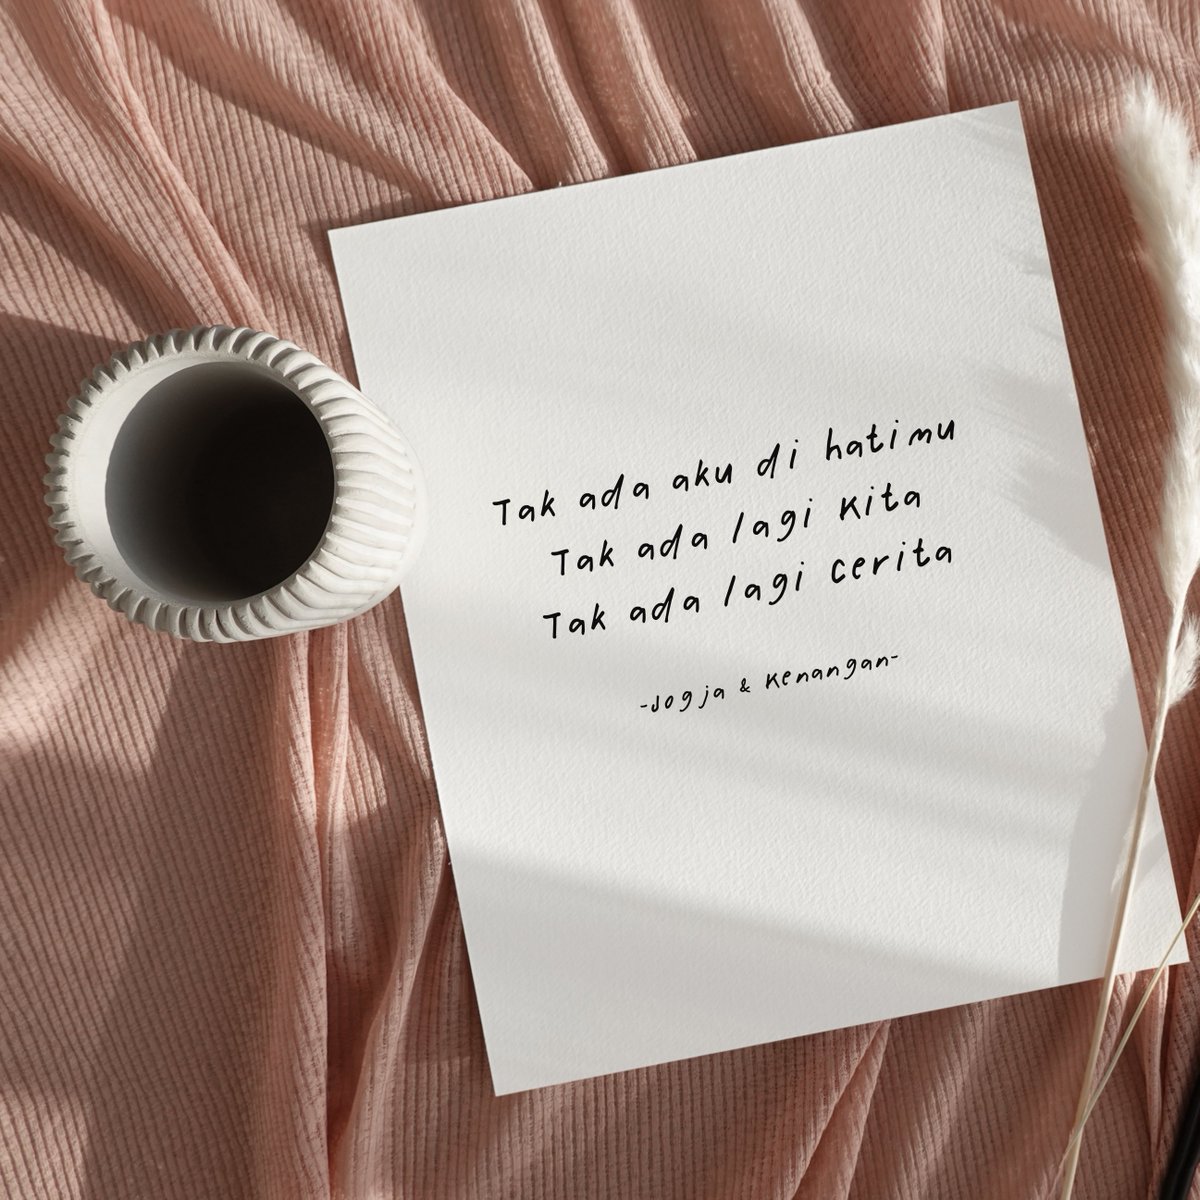 Tak ada aku di hatimu
Tak ada lagi kita
Tak ada lagi cerita
-Jogja & Kenangan-